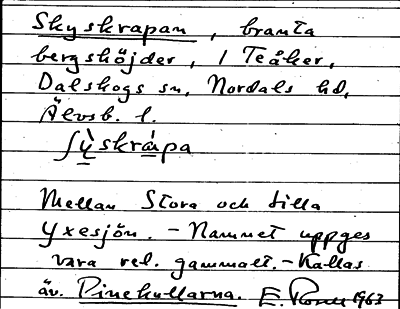 Skyskrapan, branta
bergshöjder, i Teåker,
Dalskogs sn, Nordals hd,
Älvsb. l.
ʃỳskràpa
Mellan Stora och Lilla
Yxesjön. – Namnet uppges
vara rel. gammalt. – Kallas
äv. Pinekullarna. E. 1963